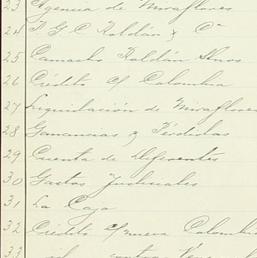 23 Agencia de Miraflores
24 F G C Roldán & Cª
25 Camacho Roldán Hnos
26 Crédito c/ Colombia
27 Liquidación de Miraflores
28 Ganancias & Pérdidas
29 Cuenta de Diferentes
30 Gastos Judiciales
31 La Caja
32 Crédito c/ nueva Colombia
33